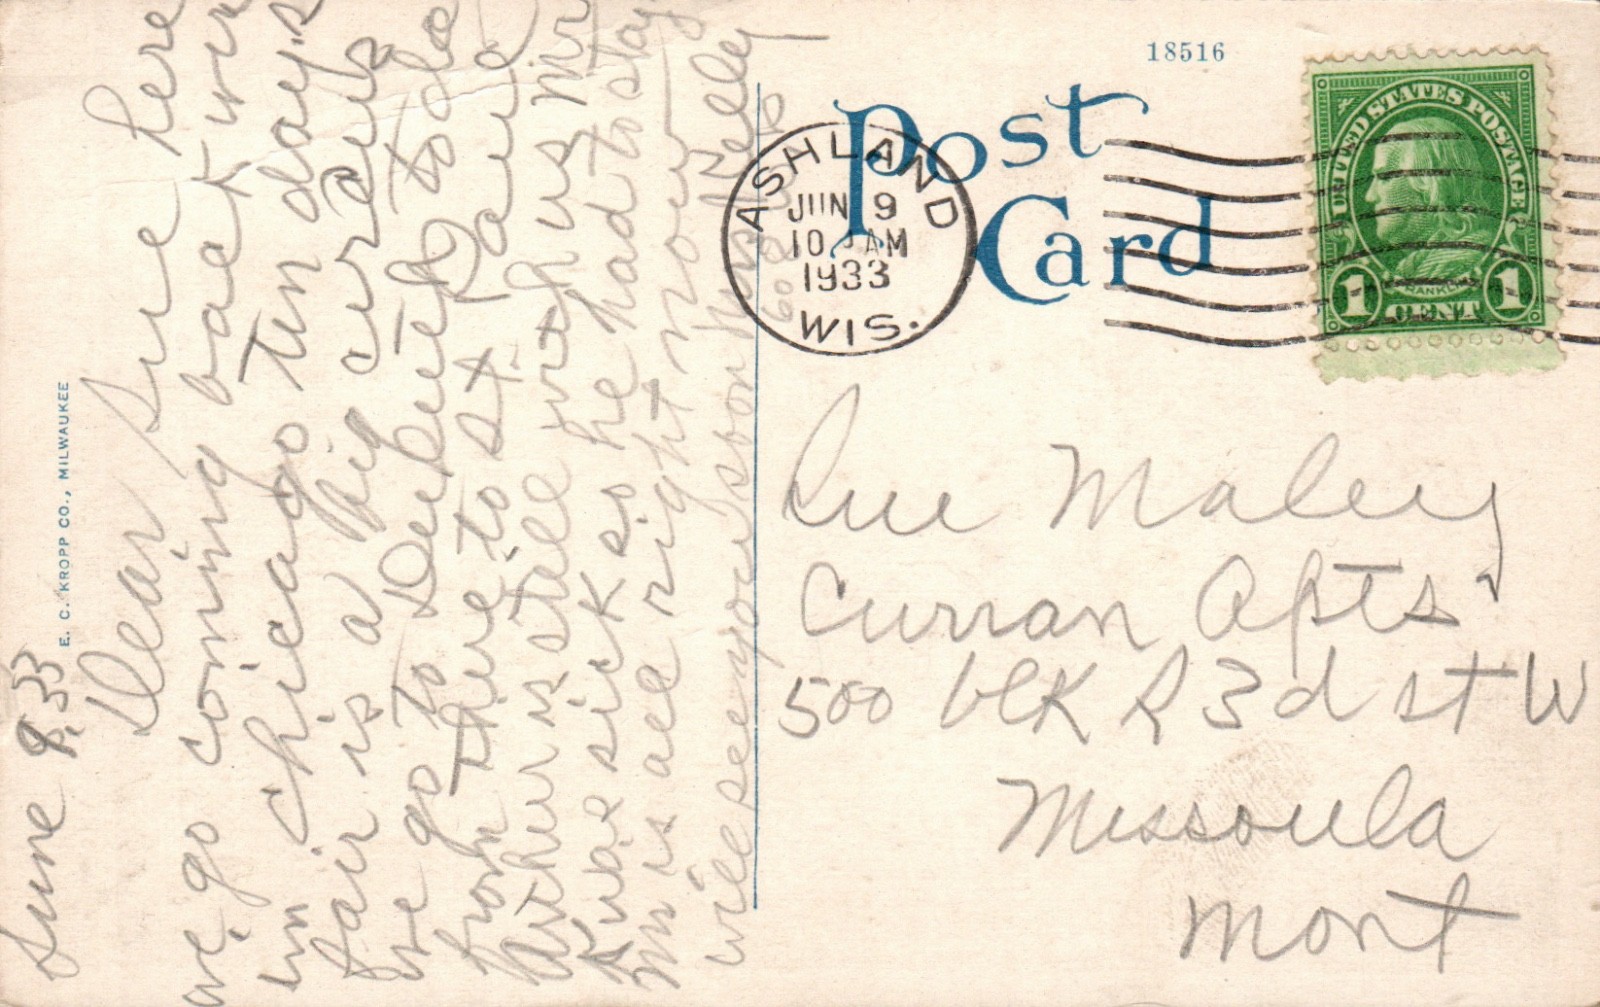 June 9. 33
Dear Sue here
we go coming back win
in Chicago ten days
fair is a big
we go to Deluth to da
from there to St Paul
Arthur is still with us Mr
was sick so he had to stay
is all right now
will see you soon
E. C. KROPP CO., MILWAUKEE
18516
Post
Card
ASHLAND
JUN 9
10 AM
1933
WIS.
UNITED STATES POSTAGE
FRANKLIN
1 CENT 1
Sue Maley
Curran Apts
500 blk R 3d st W
Missoula
Mont